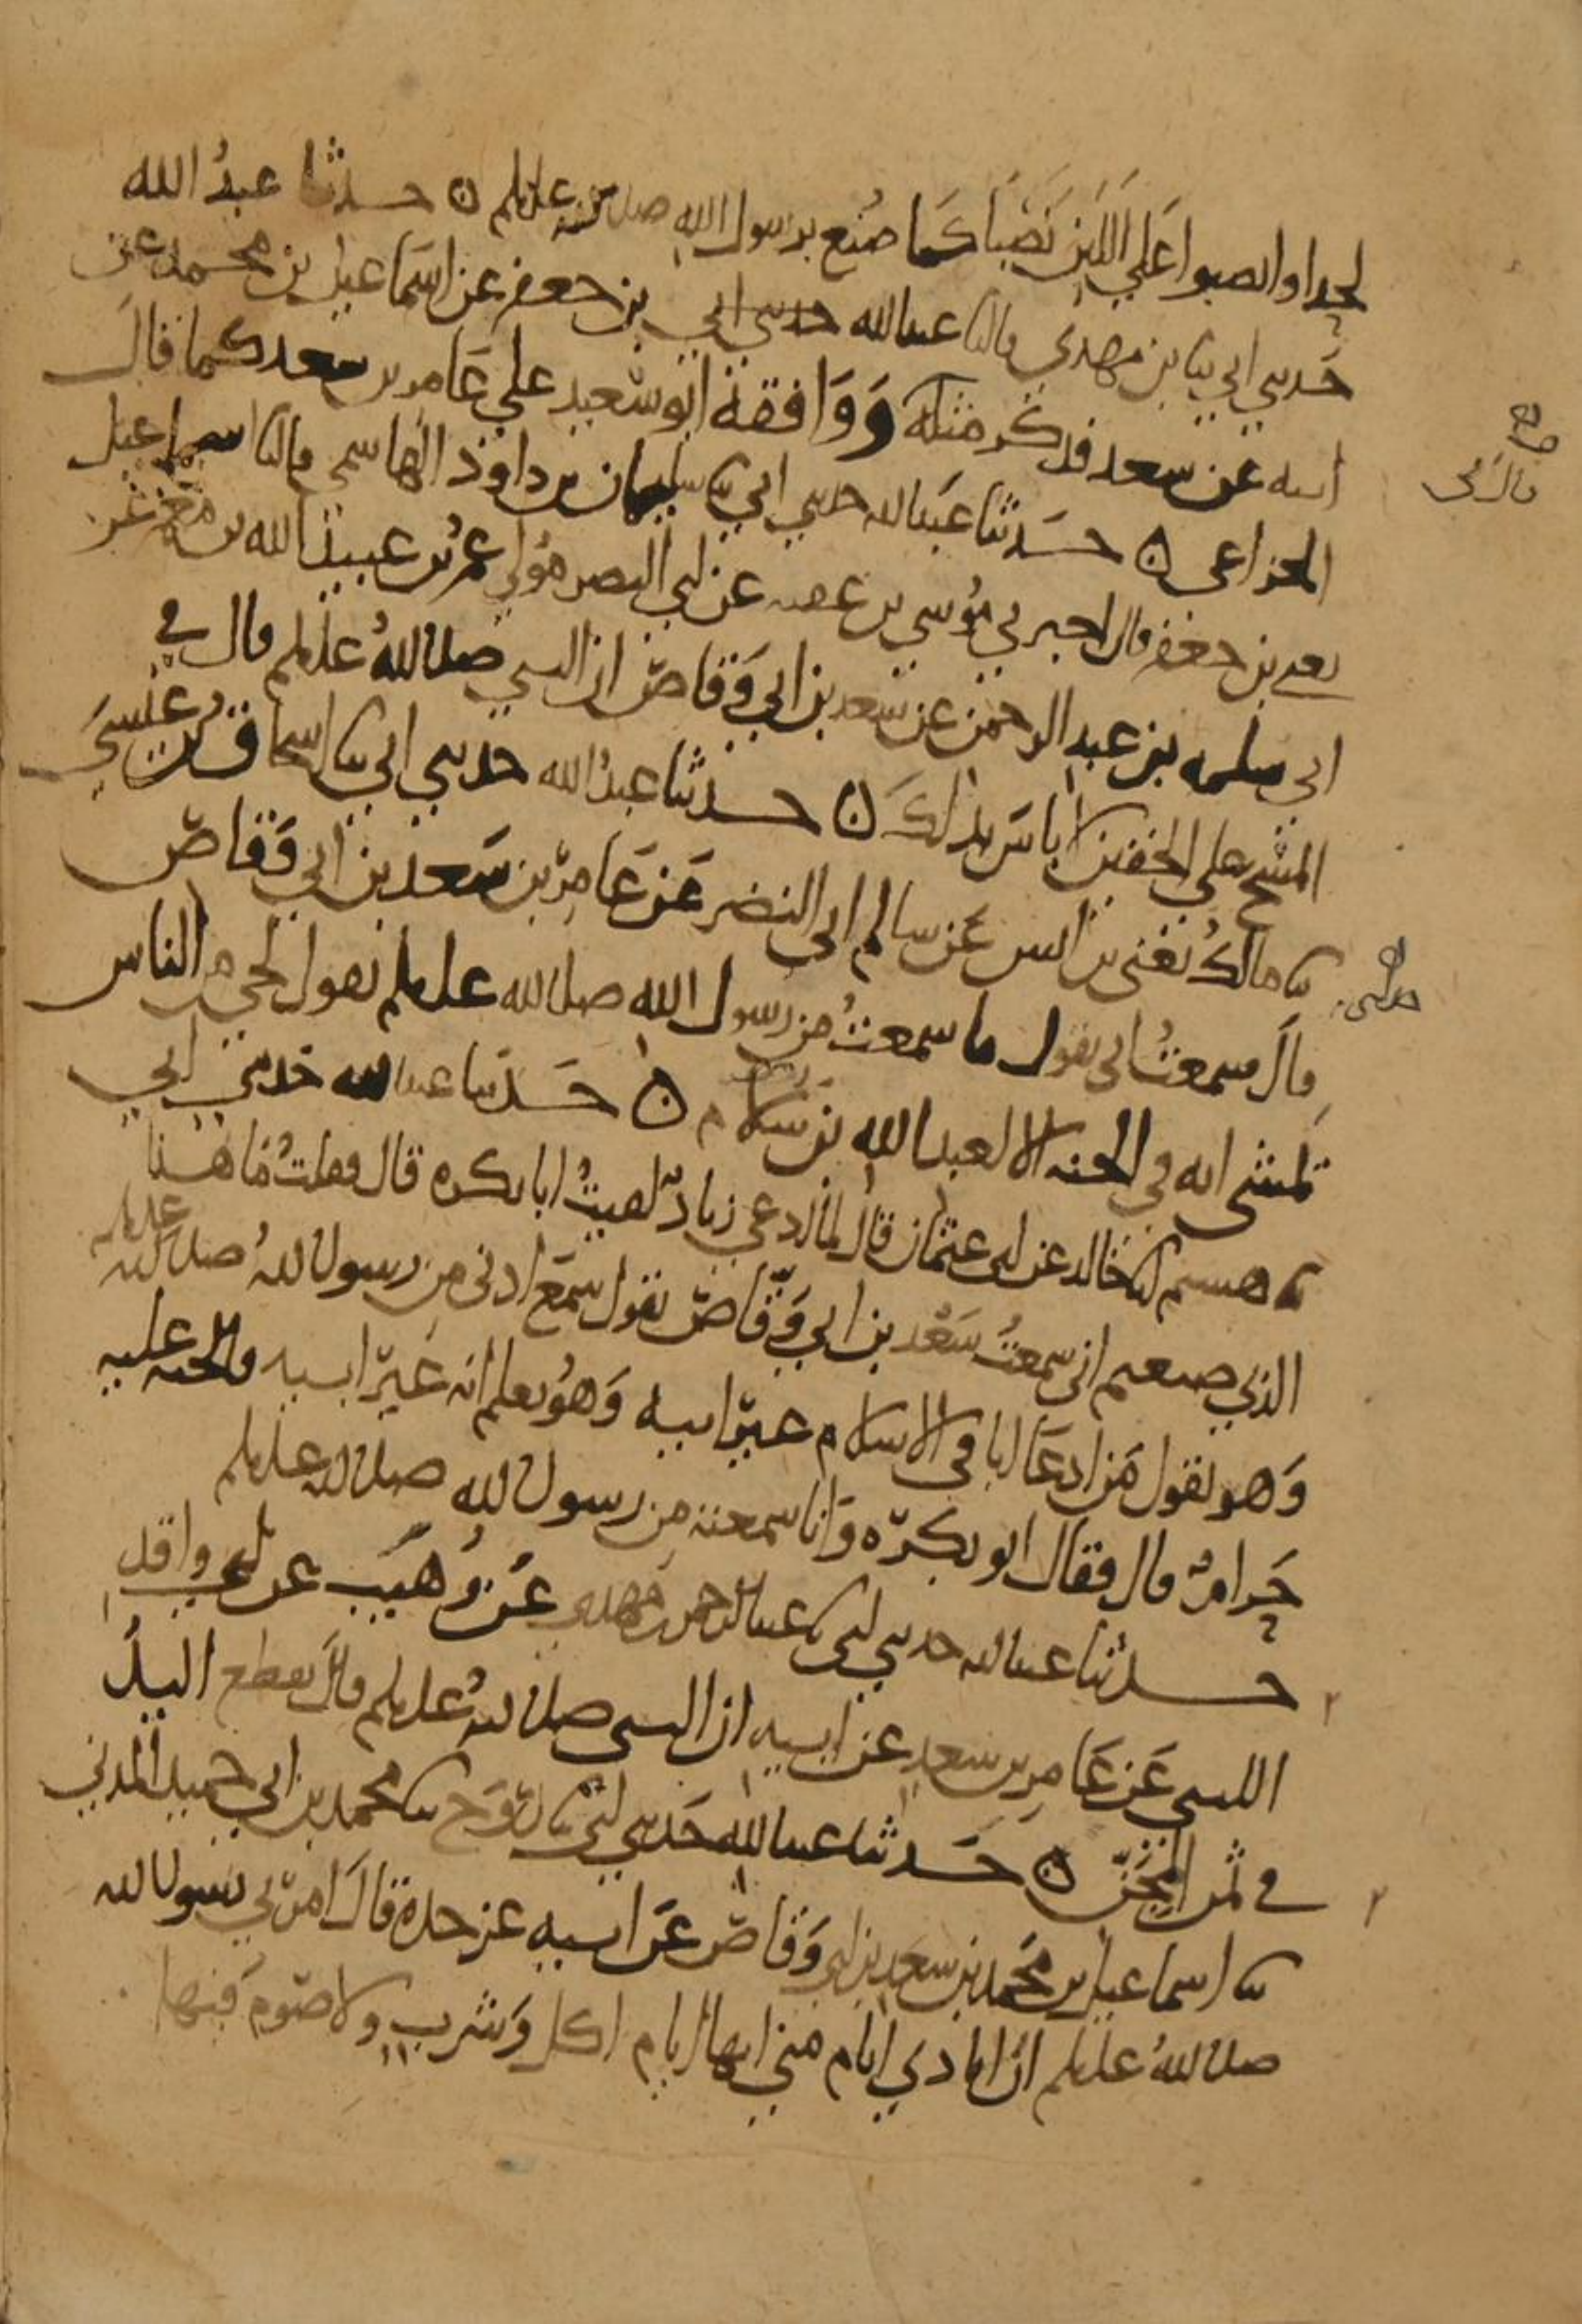 لحدا وانصبوا علي اللبن نصبا كما صنع برسول الله صلى الله عليه وسلم ه حدثنا عبد الله
حدثني ابي ثنا بن مهدي قالثنا عبد الله حدثني ابي بن جعفر عن اسماعيل بن محمد عن
ابيه عن سعد فذكر مثله ووافقه ابو سعيد علي عامر بن سعد كما قال
الخزاعي ه حدثنا عبد الله حدثني ابي ثنا سليمان بن داود الهاشمي قالثنا اسماعيل
يعني بن جعفر قال اخبرني موسي بن عقبه عن ابي النضر مولي عمر بن عبيد الله بن معمر عن
ابي سلمه بن عبد الرحمن عن سعد بن ابي وقاص ان النبي صلى الله عليه وسلم قال في
المسح علي الخفين لا باس بذلك ه حدثنا عبد الله حدثني ابي ثنا اسحاق بن عيسى
ثنا مالك يعني بن انس عن سالم ابي النضر عن عامر بن سعد بن ابي وقاص
قال سمعت ابي يقول ما سمعت من رسول الله صلى الله عليه وسلم يقول لحي من الناس
يمشي انه في الجنه الا لعبد الله بن سلام ه حدثنا عبد الله حدثني ابي
ثنا هشيم انا خالد عن ابي عثمان قال لما ادعي زياد لقيت ابا بكره قال فقلت ما هذا
الذي صنعتم اني سمعت سعد بن ابي وقاص يقول سمع اذني من رسول الله صلى الله عليه وسلم
وهو يقول من ادعا ابا في الاسلام غير ابيه وهو يعلم انه غير ابيه فالجنه عليه
حرام قال فقال ابو بكره وانا سمعته من رسول الله صلى الله عليه وسلم
حدثنا عبد الله حدثني ابي ثنا عبد الرحمن بن مهدي عن وهيب عن ابي واقد
الليثي عن عامر بن سعد عن ابيه ان النبي صلى الله عليه وسلم قال يقطع اليد
في ثمن المجن ه حدثنا عبد الله حدثني ابي ثنا روح ثنا محمد بن ابي حميد المدني
ثنا اسماعيل بن محمد بن سعد بن ابي وقاص عن ابيه عن جده قال امرني رسول الله
صلى الله عليه وسلم ان انادي ايام مني انها ايام اكل وشرب ولا صوم فيها